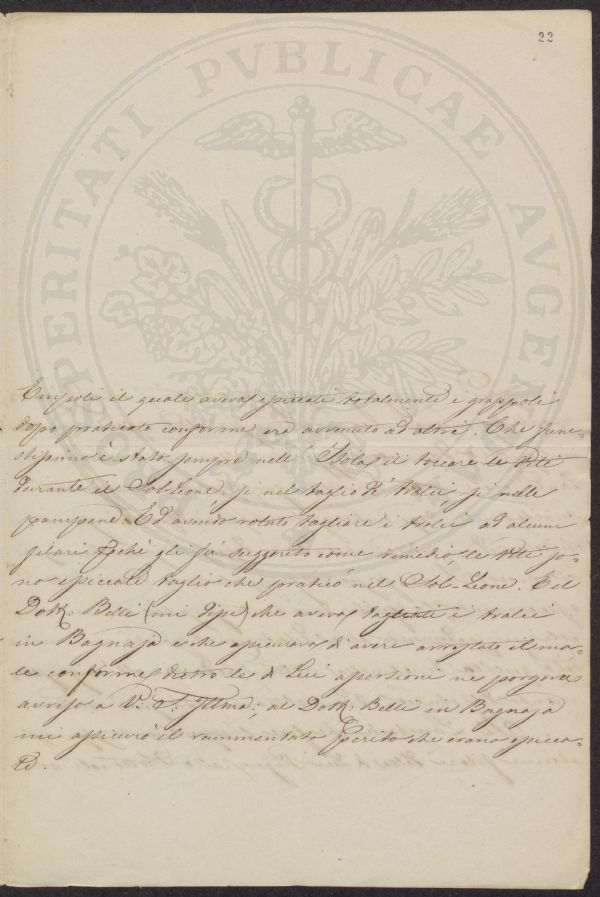 22
PROSPERITATI PVBLICAE AVGEN
Empoli il quale aveva spiccati totalmente i grappoli
dopo praticato conforme era avvenuto ad altri. Che fune-
stissimo è stato sempre nell' Isola il toccare le Viti
durante il Sol-leone, sì nel taglio de' tralci sì nelle
pampane. Ed avendo voluto tagliare i tralci ad alcuni
filari perché gli fu suggerito come rimedio, le Viti so-
no spiccate taglio che praticò nel Sol-Leone. E il
Dott. Belli (mi disse) che aveva tagliati i tralci
in Bagnaja e che assicurava d'avere arrestato il ma-
le conforme dietro le di Lui asserzioni ne porgeva
avviso a V. S. Illma; al Dott. Belli in Bagnaja
mi assicurò il rammentato Perito che erano spicca-
te.